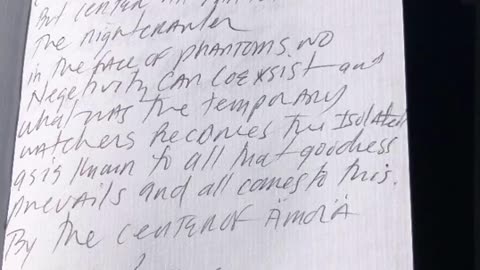 But center
the nightcrawler
in the face of phantoms. NO
Negetivity CAN COEXSIST and
what was the temporary
watchers becomes the Isolated
as is known to all that goodness
prevails and all comes to this.
By the CENTER OF ÄMORÄ